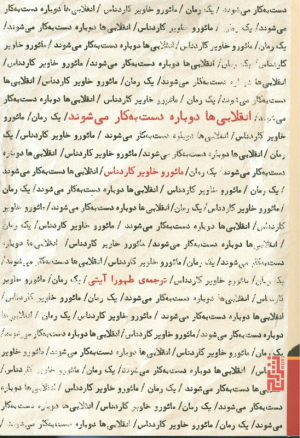 دست‌به‌کار می‌شوند / یک رمان / مائورو خاویر کاردناس / انقلابی‌ها دوباره دست‌به‌کار
می‌شوند / یک رمان / مائورو خاویر کاردناس / انقلابی‌ها دوباره دست‌به‌کار می‌شوند /
یک رمان / مائورو خاویر کاردناس / انقلابی‌ها دوباره دست‌به‌کار می‌شوند / مائورو خاویر
کاردناس / یک رمان / انقلابی‌ها دوباره دست‌به‌کار می‌شوند / مائورو خاویر کاردناس /
انقلابی‌ها دست‌به‌کار می‌شوند / یک رمان / مائورو خاویر کاردناس / انقلابی‌ها
دست‌به‌کار می‌شوند / یک رمان / مائورو خاویر کاردناس / انقلابی‌ها دوباره دست‌به‌کار
انقلابی‌ها دوباره دست‌به‌کار می‌شوند / یک رمان / مائورو
خاویر کاردناس / انقلابی‌ها دوباره دست‌به‌کار می‌شوند / مائورو خاویر کاردناس / یک
رمان / انقلابی‌ها دوباره دست‌به‌کار می‌شوند / مائورو خاویر کاردناس / انقلابی‌ها دوباره
دست‌به‌کار می‌شوند / یک رمان / مائورو خاویر کاردناس / انقلابی‌ها دست‌به‌کار می‌شوند
/ یک رمان / مائورو خاویر کاردناس / انقلابی‌ها دوباره دست‌به‌کار می‌شوند / یک رمان
/ مائورو خاویر کاردناس / یک رمان / انقلابی‌ها دوباره دست‌به‌کار می‌شوند / مائورو خاویر
کاردناس / انقلابی‌ها دوباره دست‌به‌کار می‌شوند / مائورو خاویر کاردناس / یک رمان
/ انقلابی‌ها دوباره دست‌به‌کار می‌شوند / مائورو خاویر کاردناس / انقلابی‌ها دوباره
دست‌به‌کار می‌شوند / یک رمان / مائورو خاویر کاردناس / انقلابی‌ها دست‌به‌کار می‌شوند /
یک رمان / مائورو خاویر کاردناس / ترجمه‌ی طهورا آیتی / یک رمان / مائورو خاویر
کاردناس / انقلابی‌ها دوباره دست‌به‌کار می‌شوند / مائورو خاویر کاردناس /
انقلابی‌ها دوباره دست‌به‌کار می‌شوند / مائورو خاویر کاردناس / یک رمان / انقلابی‌ها
دوباره دست‌به‌کار می‌شوند / مائورو خاویر کاردناس / انقلابی‌ها دوباره دست‌به‌کار می‌شوند /
یک رمان / مائورو خاویر کاردناس / انقلابی‌ها دوباره دست‌به‌کار می‌شوند / مائورو خاویر
انقلابی‌ها دوباره دست‌به‌کار می‌شوند / یک رمان / مائورو خاویر کاردناس /
دست‌به‌کار می‌شوند / یک رمان / مائورو خاویر کاردناس / انقلابی‌ها دوباره
دست‌به‌کار می‌شوند / یک رمان / مائورو خاویر کاردناس / انقلابی‌ها دوباره دست‌به‌کار
می‌شوند / یک رمان / مائورو خاویر کاردناس / انقلابی‌ها دوباره دست‌به‌کار می‌شوند /